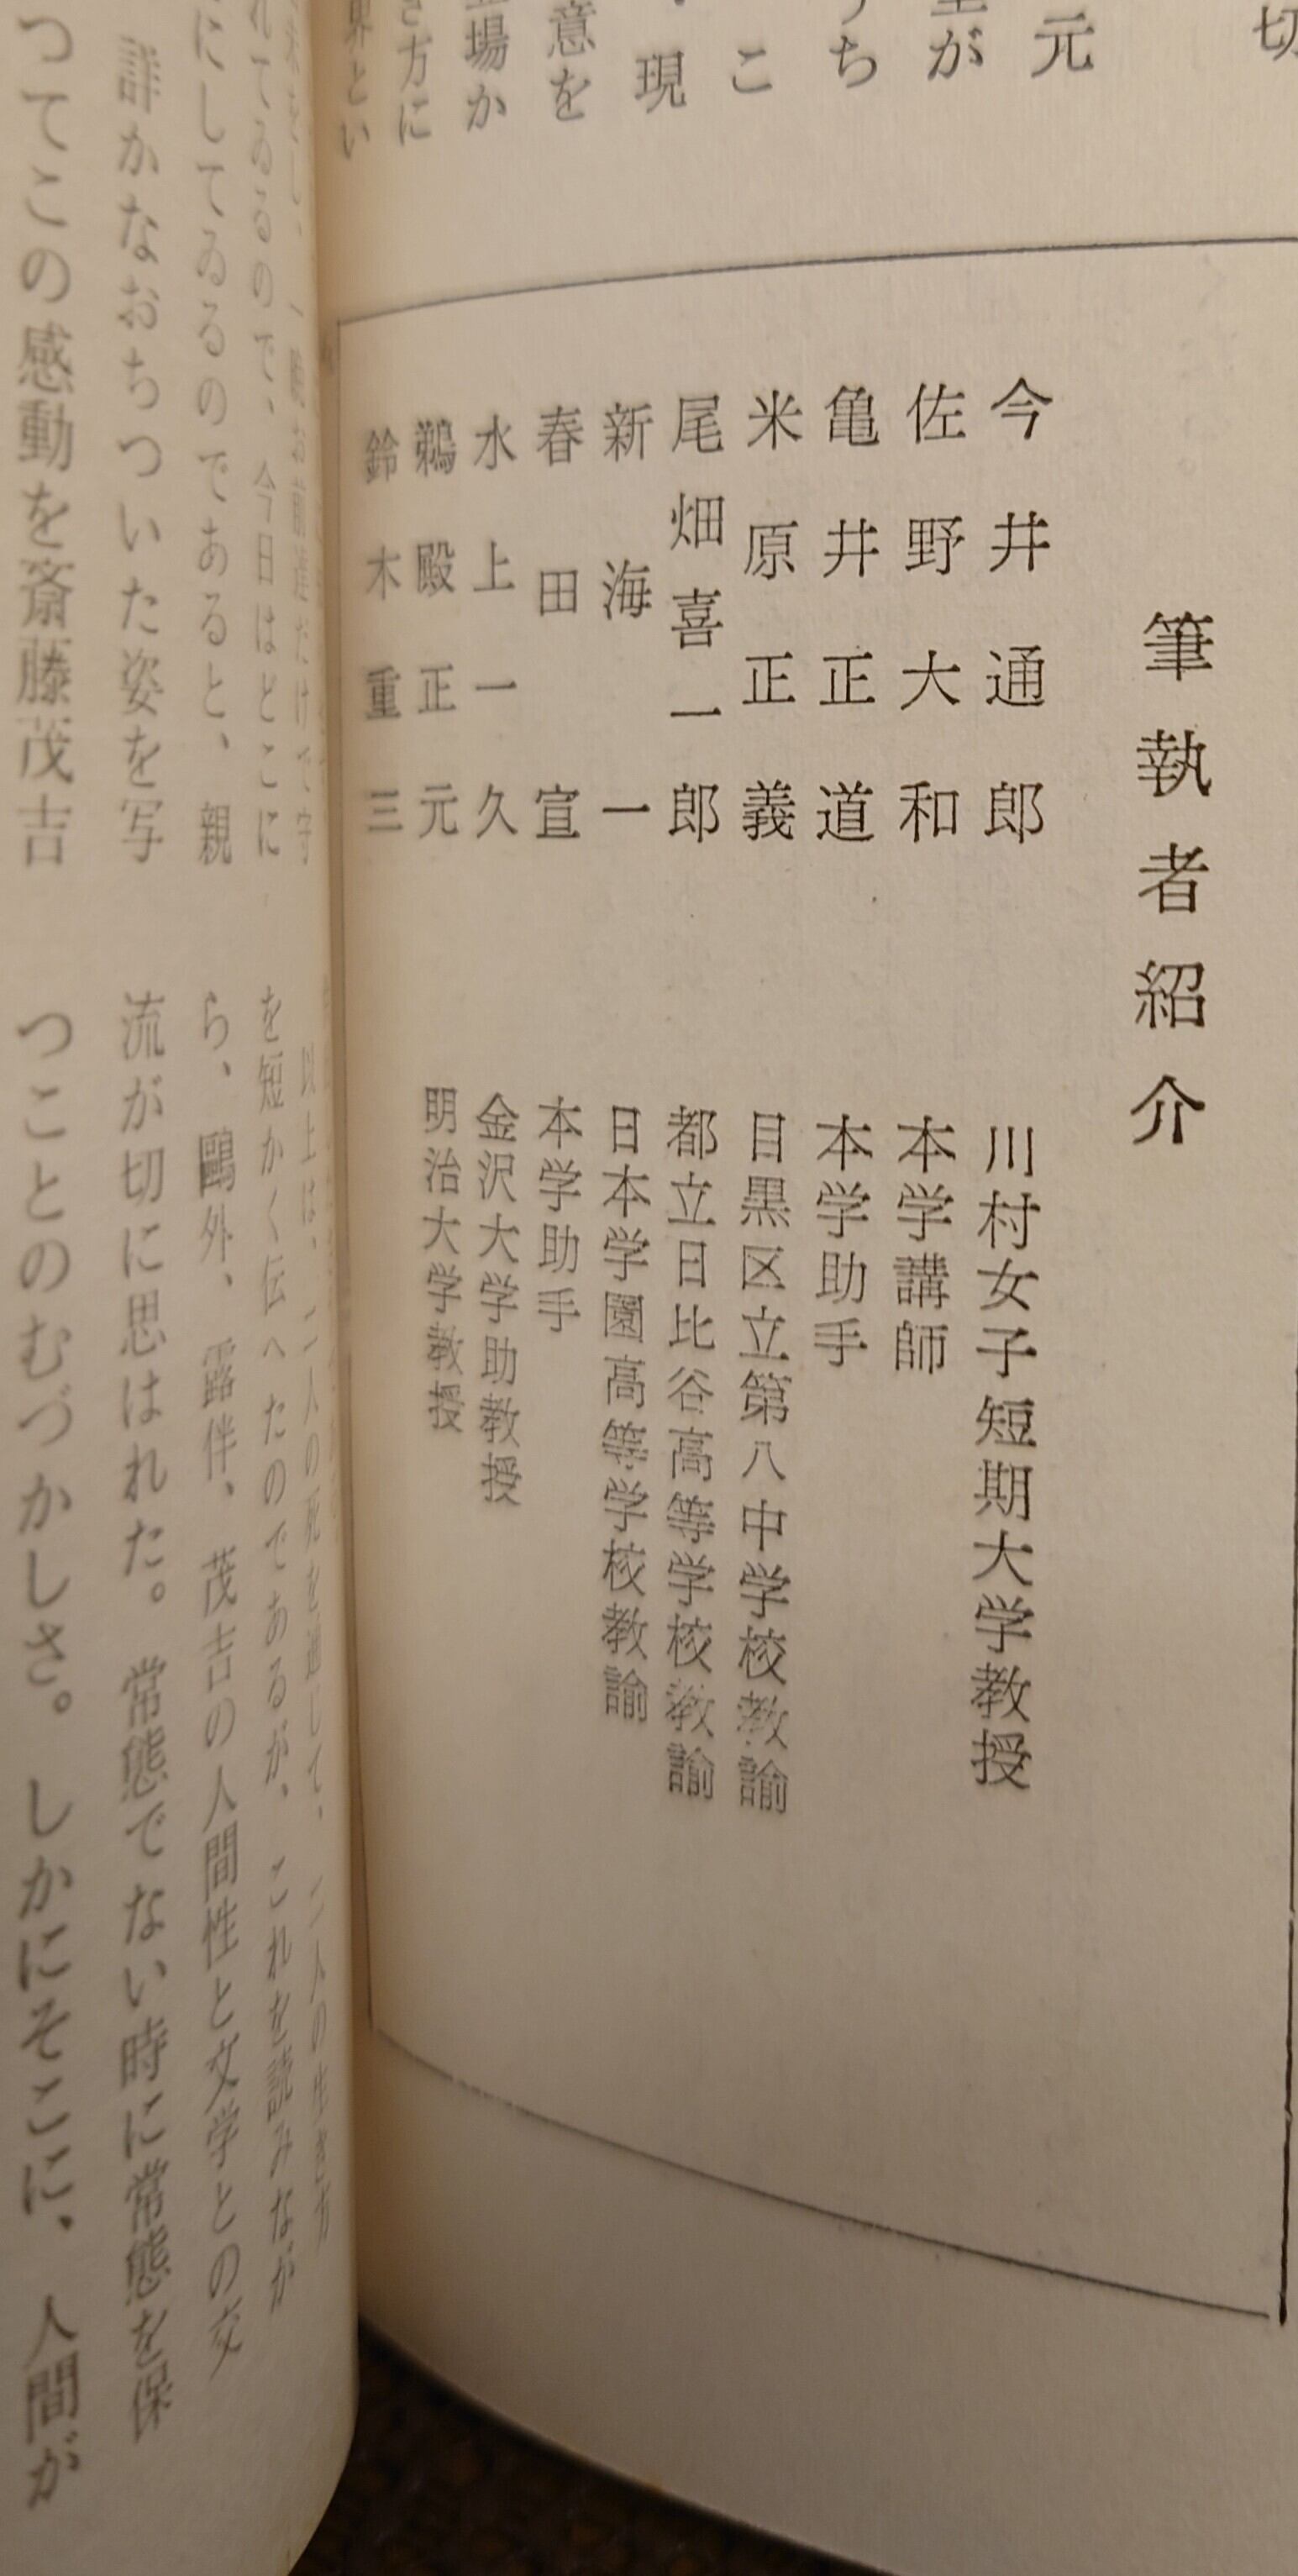 切
元
が
ち
こ
現
意を
場か
き方に
界とい
筆執者紹介
今井通郎 川村女子短期大学教授
佐野大和 本学講師
亀井正道 本学助手
米原正義 目黒区立第八中学校教諭
尾畑喜一郎 都立日比谷高等学校教諭
新海一 日本学園高等学校教諭
春田宣 本学助手
水上一久 金沢大学助教授
鵜殿正元 明治大学教授
鈴木重三
れてゐるので、今日はどこに
にしてゐるのであると、親
詳かなおちついた姿を写
つてこの感動を斎藤茂吉
以上は、二人の死を通して、二人の生き方
を短かく伝へたのであるが、これを読みなが
ら、鷗外、露伴、茂吉の人間性と文学との交
流が切に思はれた。常態でない時に常態を保
つことのむづかしさ。しかにそこに、人間が